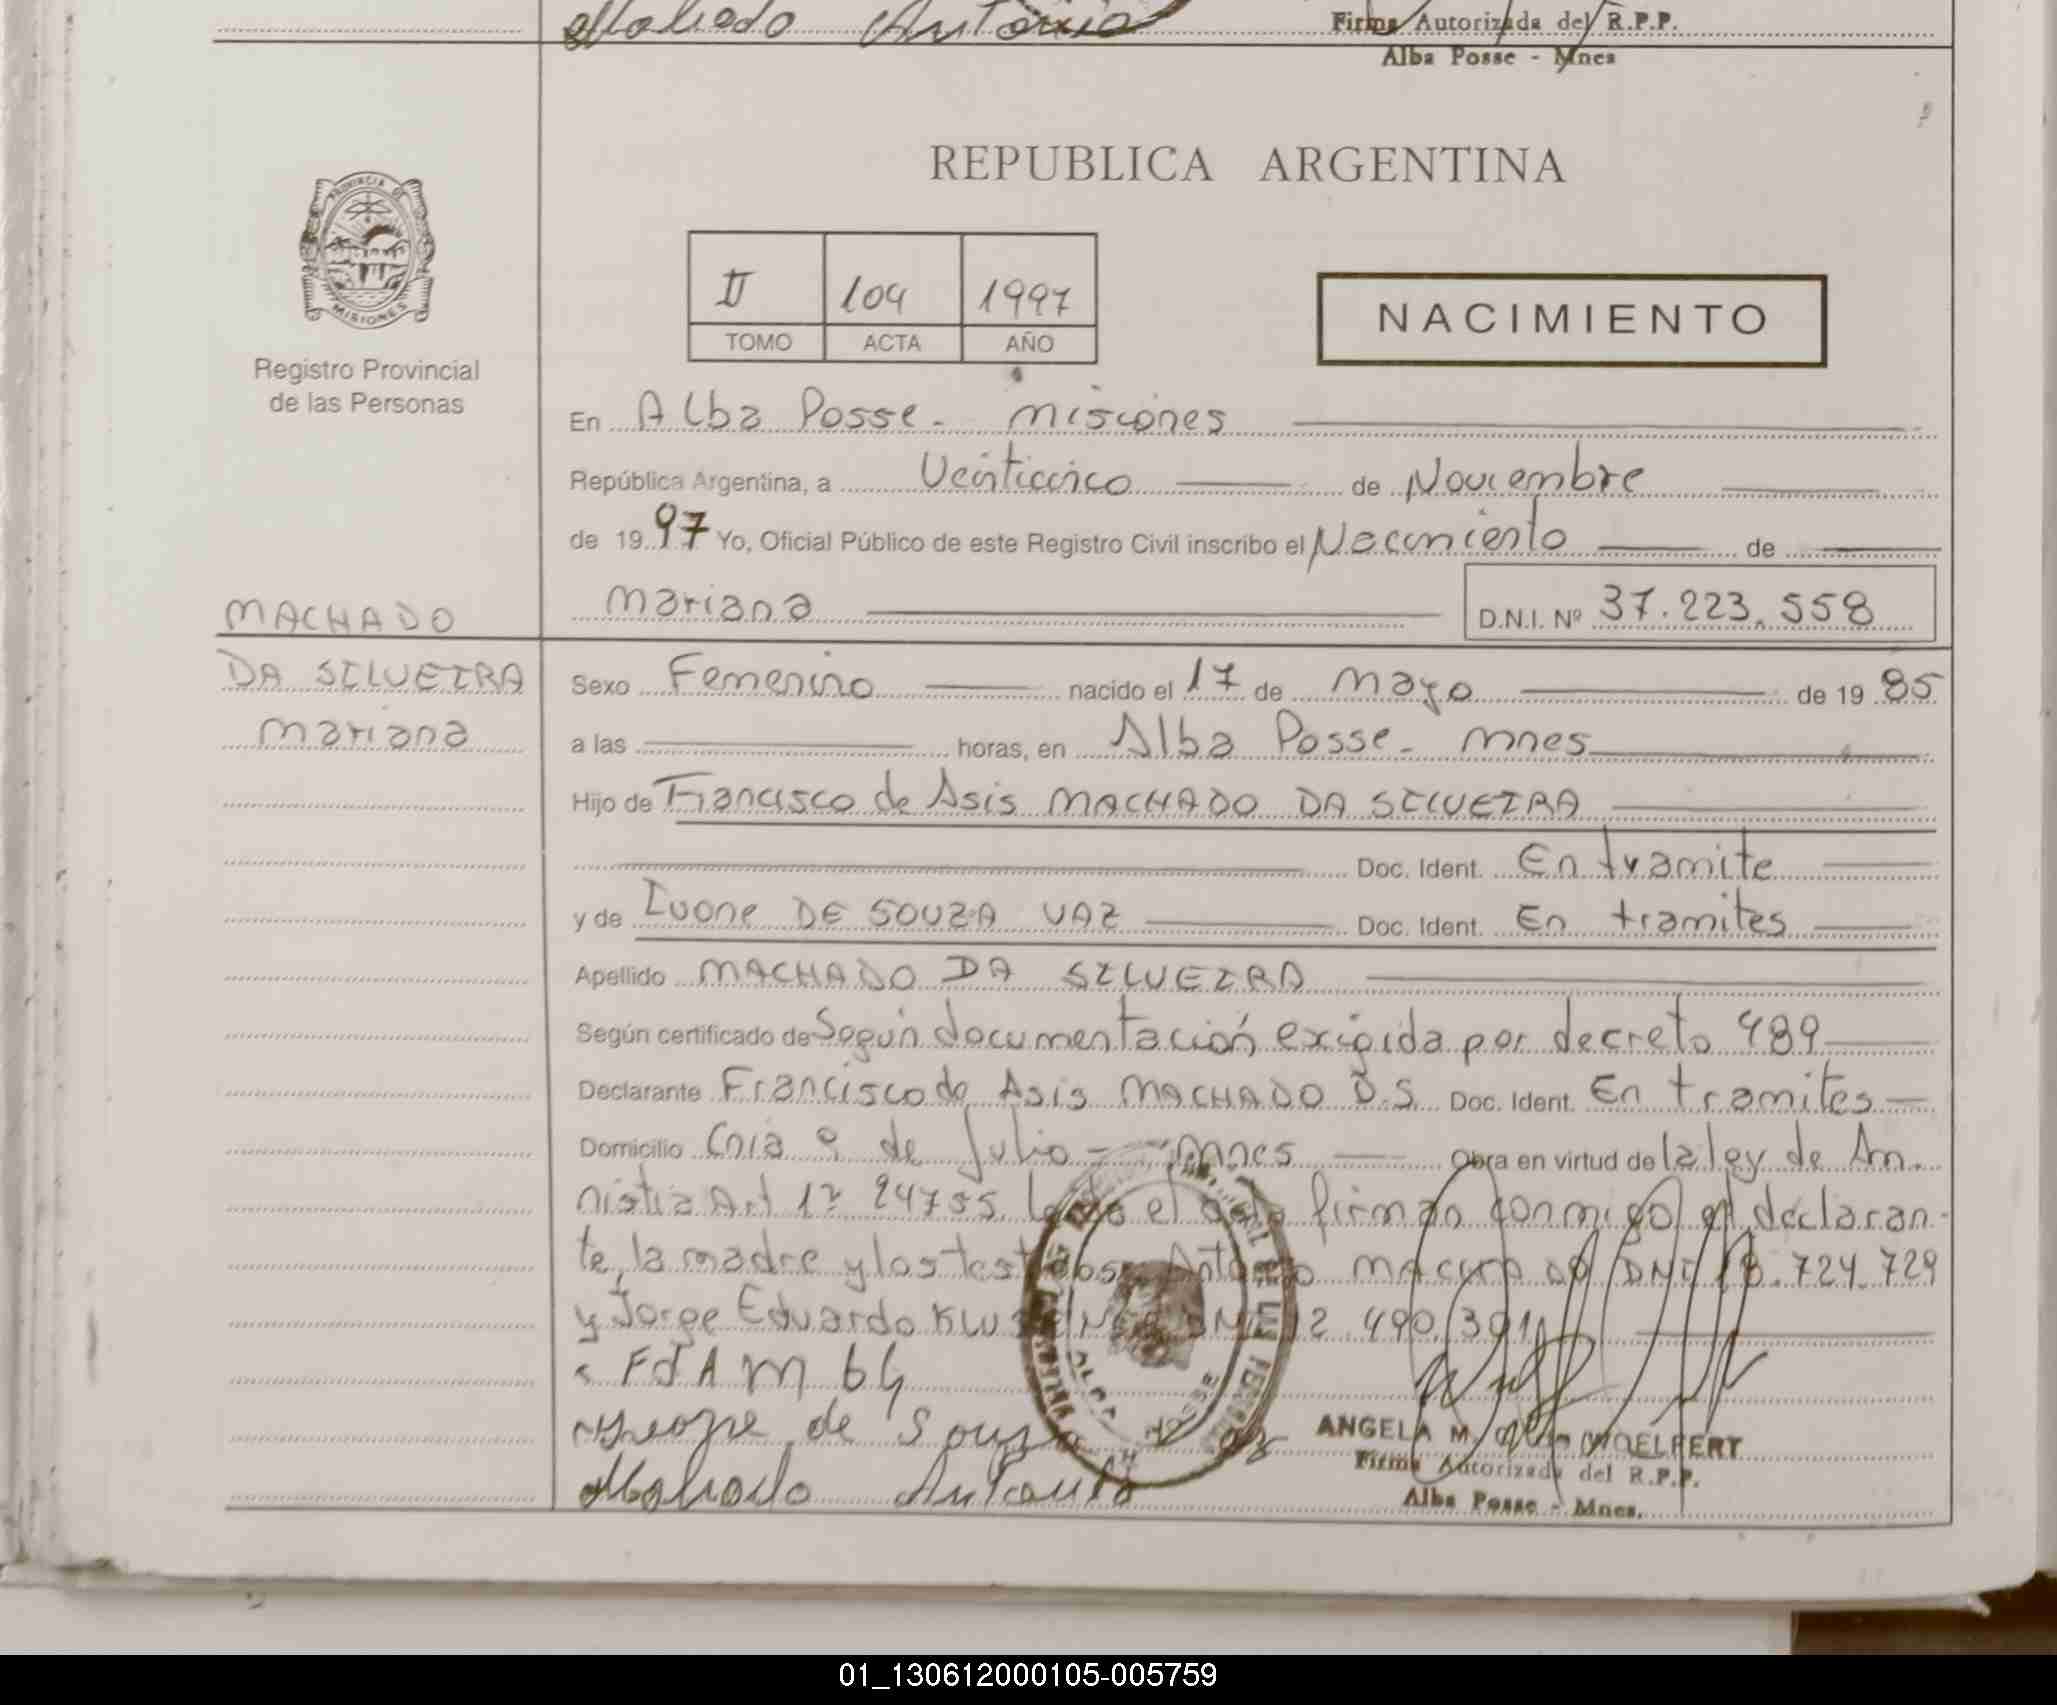 Machado Antonio
Firma Autorizada del R.P.P.
Alba Posse - Mnes
PROVINCIA DE
MISIONES
Registro Provincial
de las Personas
REPUBLICA ARGENTINA
II 104 1997
TOMO ACTA AÑO
NACIMIENTO
En Alba Posse - Misiones
República Argentina, a Veinticinco de Noviembre
de 19 97 Yo, Oficial Público de este Registro Civil inscribo el Nacimiento de
Mariana D.N.I. Nº 37.223.558
MACHADO
DA SILVEIRA
Mariana
Sexo Femenino nacido el 17 de Mayo de 19 85
a las horas, en Alba Posse - Mnes
Hijo de Francisco de Asis MACHADO DA SILVEIRA
Doc. Ident. En tramite
y de Ivone DE SOUZA VAZ Doc. Ident. En tramites
Apellido MACHADO DA SILVEIRA
Según certificado de Según documentación exigida por decreto 489
Declarante Francisco de Asis MACHADO D.S. Doc. Ident. En tramites
Domicilio Cnia 9 de Julio - Mnes Obra en virtud de la ley de Am
nistia Art 1º 24755 el acta firman conmigo el declaran-
te, la madre y los testigos Antonio MACHADO DNI 18.724.729
y Jorge Eduardo DNI 12.490.391
de Souza
Machado Antonio
ANGELA M. WOELFERT
Firma Autorizada del R.P.P.
Alba Posse - Mnes.
01_130612000105-005759